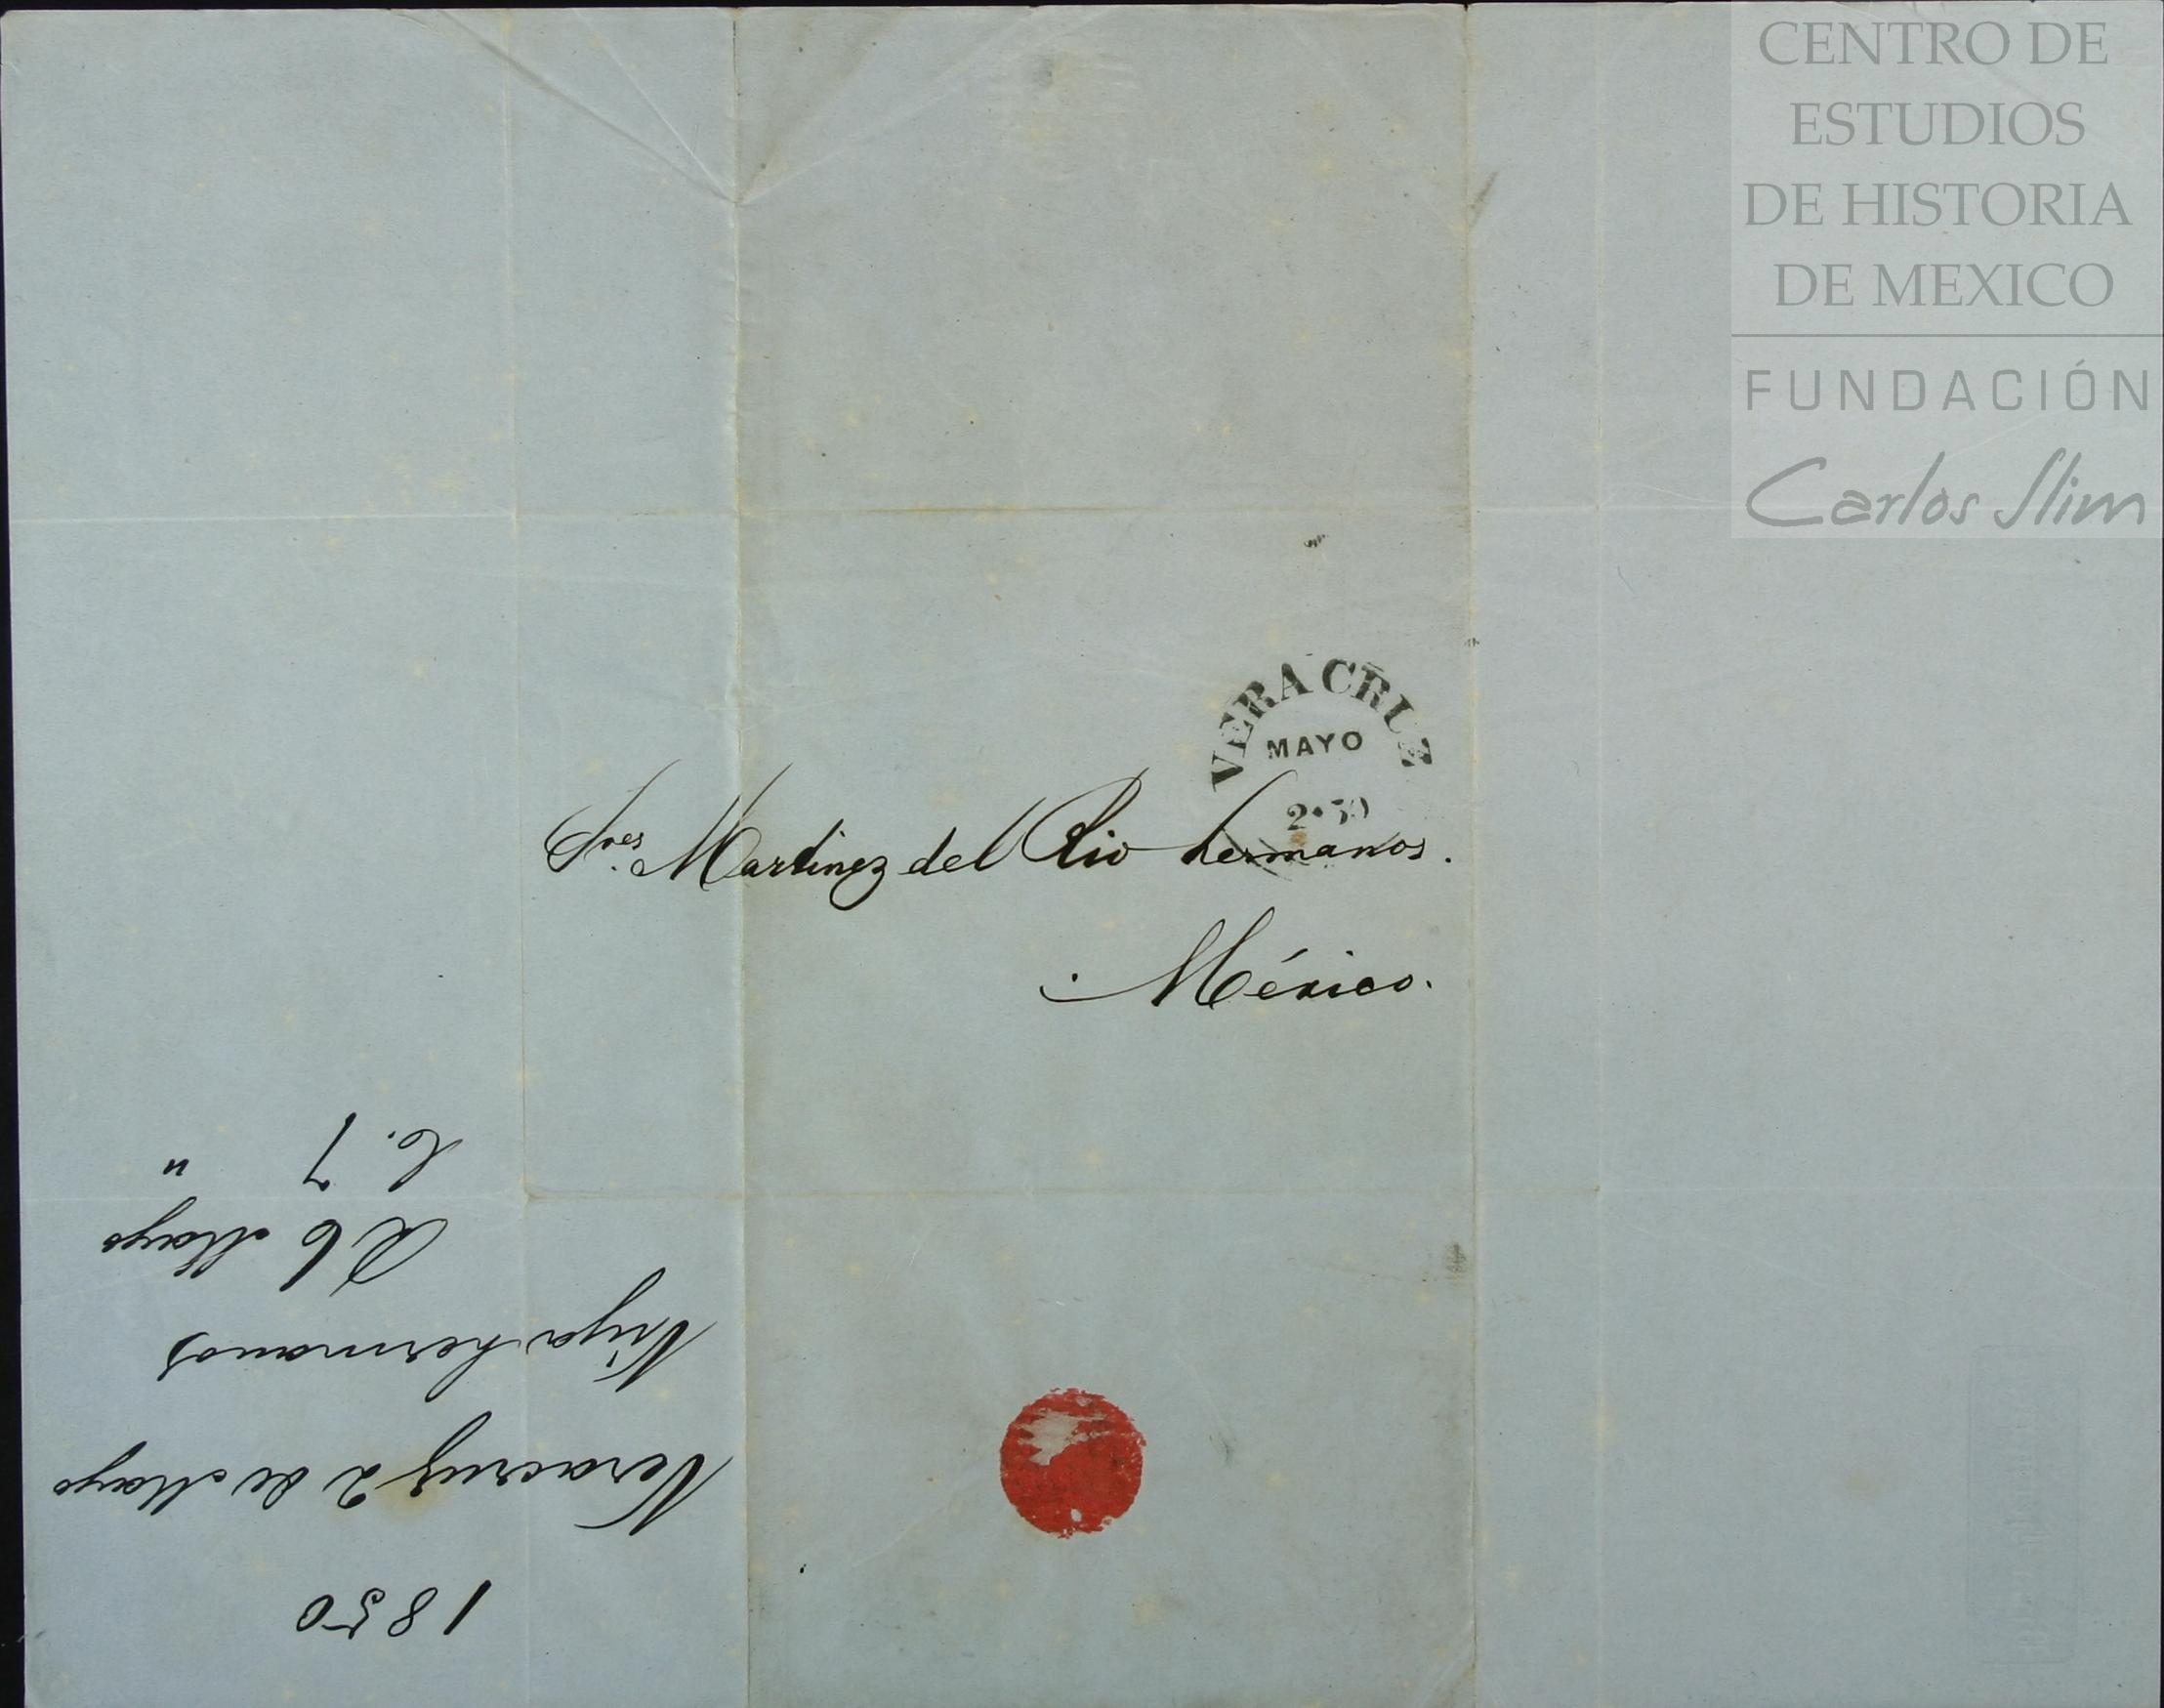 CENTRO DE
ESTUDIOS
DE HISTORIA
DE MEXICO
FUNDACIÓN
Carlos Slim
VERA CRUZ
MAYO
2·50
Sres. Martinez del Rio hermanos.
México.
1850
Veracruz 2 de Mayo
Viya hermanos
R 6 Mayo
C. 7 "